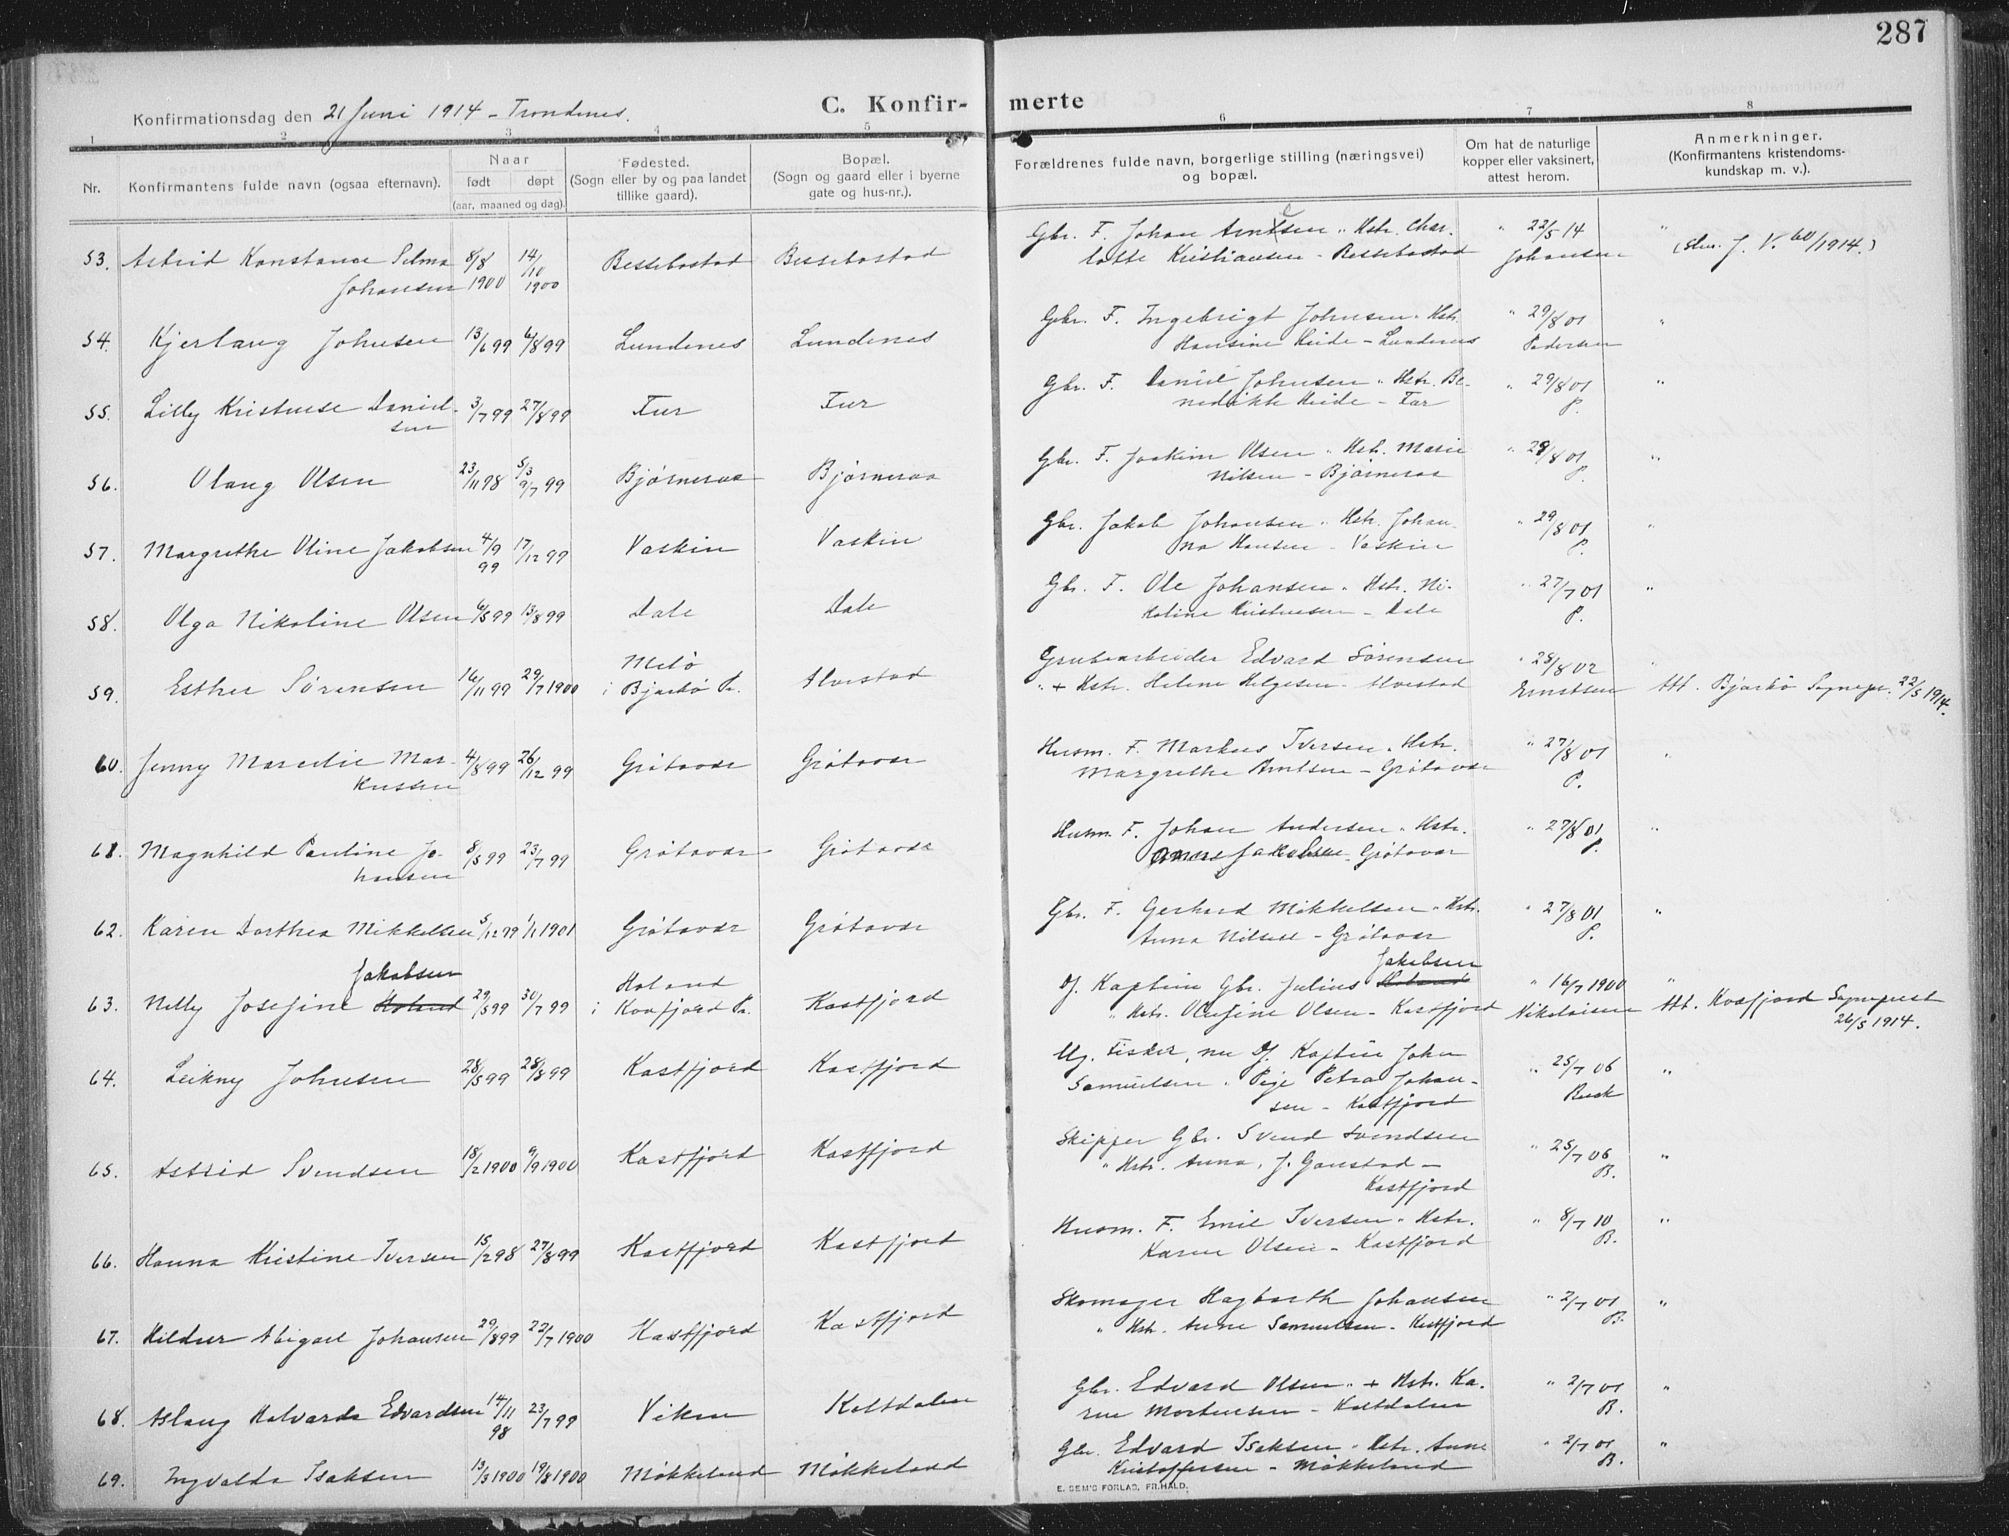 287
Konfirmationsdag den 21 Juni 1914 - Trondenes.
C. Konfir- merte
1 2 3 4 5 6 7 8
Nr.
Konfirmantens fulde navn (ogsaa efternavn).
Naar
født døpt
(aar, maaned og dag).
Fødested.
(Sogn eller by og paa landet
tillike gaard).
Bopæl.
(Sogn og gaard eller i byerne
gate og hus-nr.).
Forældrenes fulde navn, borgerlige stilling (næringsvei)
og bopæl.
Om hat de naturlige
kopper eller vaksinert,
attest herom.
Anmerkninger.
(Konfirmantens kristendoms-
kundskap m. v.).
53. Astrid Konstance Selma 8/8 14/10 Bessebostad Bessebostad Gbr. F. Johan " Hstr. Char- " 22/5 14 "
Johansen 1900 1900 lotte Kristiansen - Bessebostad Johansen J. V. 60/1914.)
54. Kjerlaug Johnsen 13/6 99 6/8 99 Lundenes Lundenes Gbr. F. Ingebrigt Johnsen " Hstr. " 29/8 01 "
Hansine Heide - Lundenes Pedersen
55. Lilly Kristense Daniel- 3/7 99 27/8 99 Fur Fur Gbr. F. Daniel Johnsen " Hstr. Be- " 29/8 01 "
sen nedikte Heide - Fur P.
56. Olaug Olsen 23/11 98 5/3 9/7 99 Bjørneraa Bjørneraa Gbr. F. Joakim Olsen " Hstr. Marie " 29/8 01 "
Nilsen - Bjørneraa P.
57. Margrethe Oline Jakobsen 4/9 99 17/12 99 Vaskin Vaskin Gbr. Jakob Johansen " Hstr. Johan- " 29/8 01 "
na Hansen - Vaskin P.
58. Olga Nikoline Olsen 6/5 99 13/8 99 Dale Dale Gbr. F. Ole Johansen " Hstr. Ni- " 27/7 01 "
koline Kristensen - Dale P.
59. Esther Sørensen 16/11 99 29/7 1900 Melø Alvestad Grubearbeider Edvard Sørensen " 28/8 02 "
i Bjarkø Pr. " + Hstr. Helene Helgesen - Alvestad Ernstsen Att. Bjarkø Sognepr. 22/5 1914.
60. Jenny Marselie Mar- 4/8 99 26/12 99 Grøtavær Grøtavær Husm. F. Markus Iversen " Hstr. " 27/8 01 "
kussen Margrethe Arntsen - Grøtavær P.
61. Magnhild Pauline Jo- 8/5 99 23/7 99 Grøtavær Grøtavær Husm. F. Johan Andersen " Hstr. " 27/8 01 "
hansen Jakobsen - Grøtavær P.
62. Karen Dorthea Mikkelsen 5/12 99 1/1 1901 Grøtavær Grøtavær Gbr. F. Gerhard Mikkelsen " Hstr. " 27/8 01 "
Anna Nilsen - Grøtavær P.
Jakobsen Holand Jakobsen
63. Nelly Josefine Holand 29/5 99 30/7 99 i Kvæfjord Pr. Kastfjord Df. Kaptein Gbr. Julius Holand " 16/7 1900 "
" Hstr. Olufine Olsen - Kastfjord Nikolaisen Att. Kvæfjord Sogneprest
26/5 1914.
64. Leikny Johnsen 28/5 99 28/8 99 Kastfjord Kastfjord Ug. Fisker, nu Df. Kaptein John " 25/7 06 "
Samuelsen " Pige Petra Johan- Buck
sen - Kastfjord
65. Astrid Svendsen 18/2 1900 9/9 1900 Kastfjord Kastfjord Skipper Gbr. Svend Svendsen " 25/7 06 "
" Hstr. Anna, f. Ganstad - B.
Kastfjord
66. Hanna Kristine Iversen 15/2 98 27/8 99 Kastfjord Kastfjord Husm. F. Emil Iversen " Hstr. " 8/7 10 "
Karen Olsen - Kastfjord B.
67. Hildur Abigael Johansen 29/8 99 22/7 1900 Kastfjord Kastfjord Skomager Hagbarth Johansen " 2/7 01 "
" Hstr. Anne Samuelsen - Kastfjord B.
68. Aslaug Halvarda Edvardsen 14/11 98 23/7 99 Viken Koltdalen Gbr. Edvard Olsen " + Hstr. Ka- " 2/7 01 "
ren Mortensen - Koltdalen B.
69. Ingvalda Isaksen 13/3 1900 19/8 1900 Møkkeland Møkkeland Gbr. Edvard Isaksen " Hstr. Anne " 2/7 01 "
Kristoffersen - Møkkeland B.
E. SEM'S FORLAG, FR.HALD.